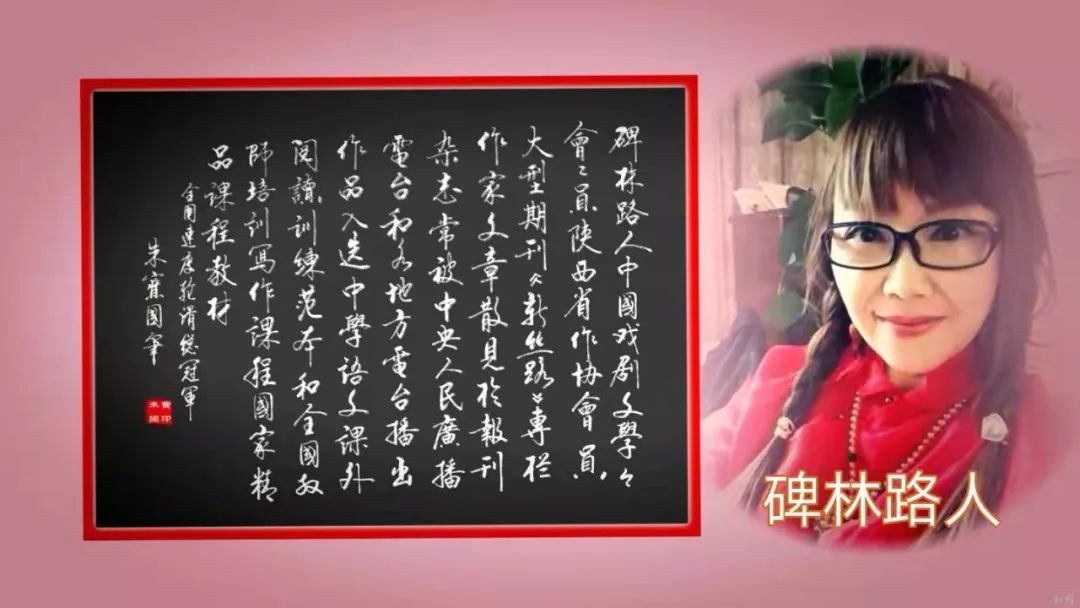 碑林路人中國戏剧文學々
會々員陕西省作协會員,
大型期刊《新丝路》專栏
作家文章散見於報刊
杂志常被中央人民廣播
電台和各地方電台播出
作品入选中學語文課外
阅讀訓練范本和全國教
師培訓寫作課程國家精
品課程教材
全國速度轮滑總冠軍
朱寶國筆
碑林路人